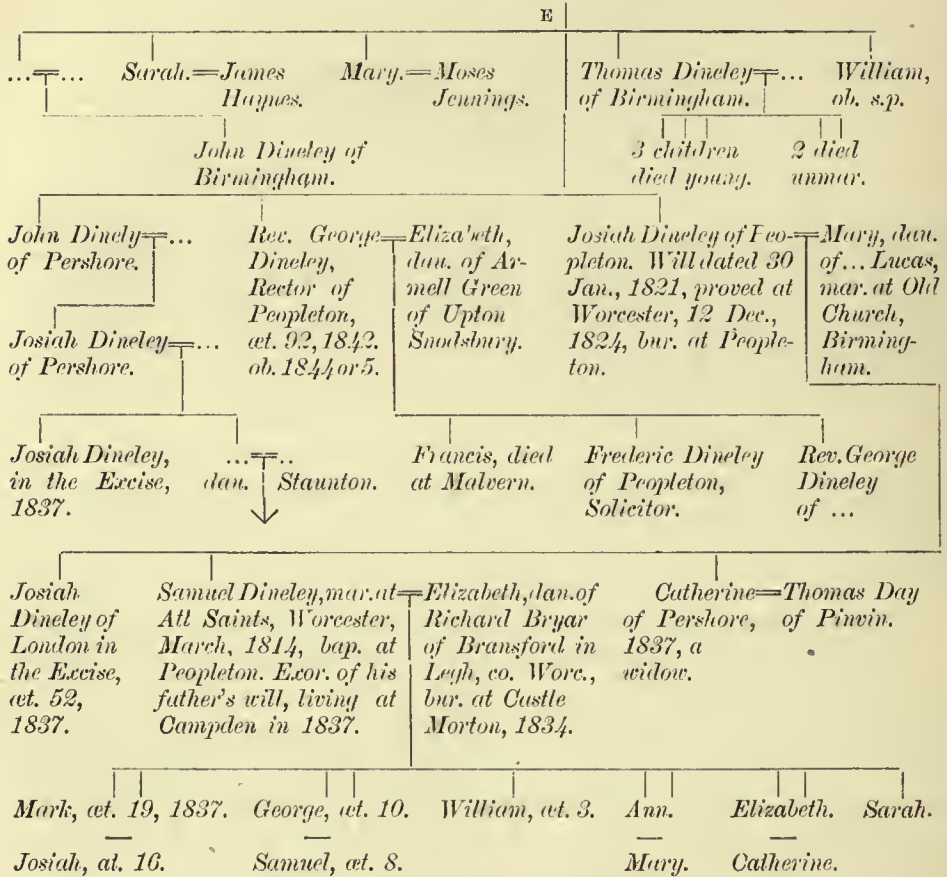 E
...=...
Sarah.=James
Haynes.
Mary.=Moses
Jennings.
Thomas Dineley=...
of Birmingham.
William,
ob. s.p.
John Dineley of
Birmingham.
3 children
died young.
2 died
unmar.
John Dinely=...
of Pershore.
Rev. George=
Dineley,
Rector of
Peopleton,
æt. 92, 1842.
ob. 1844 or 5.
Elizabeth,
dau. of Ar-
mell Green
of Upton
Snodsbury.
Josiah Dineley of Peo-=
pleton. Will dated 30
Jan., 1821, proved at
Worcester, 12 Dec.,
1824, bur. at People-
ton.
Mary, dau.
of... Lucas,
mar. at Old
Church,
Birming-
ham.
Josiah Dineley=...
of Pershore.
Josiah Dineley,
in the Excise,
1837.
...=..
dau. Staunton.
Francis, died
at Malvern.
Frederic Dineley
of Peopleton,
Solicitor.
Rev. George
Dineley
of ...
Josiah
Dineley of
London in
the Excise,
æt. 52,
1837.
Samuel Dineley, mar. at=
All Saints, Worcester,
March, 1814, bap. at
Peopleton. Exor. of his
father's will, living at
Campden in 1837.
Elizabeth, dau. of
Richard Bryar
of Bransford in
Legh, co. Worc.,
bur. at Castle
Morton, 1834.
Catherine=Thomas Day
of Pershore, of Pinvin.
1837, a
widow.
Mark, æt. 19, 1837. George, æt. 10. William, æt. 3. Ann. Elizabeth. Sarah.
Josiah, æt. 16. Samuel, æt. 8. Mary. Catherine.